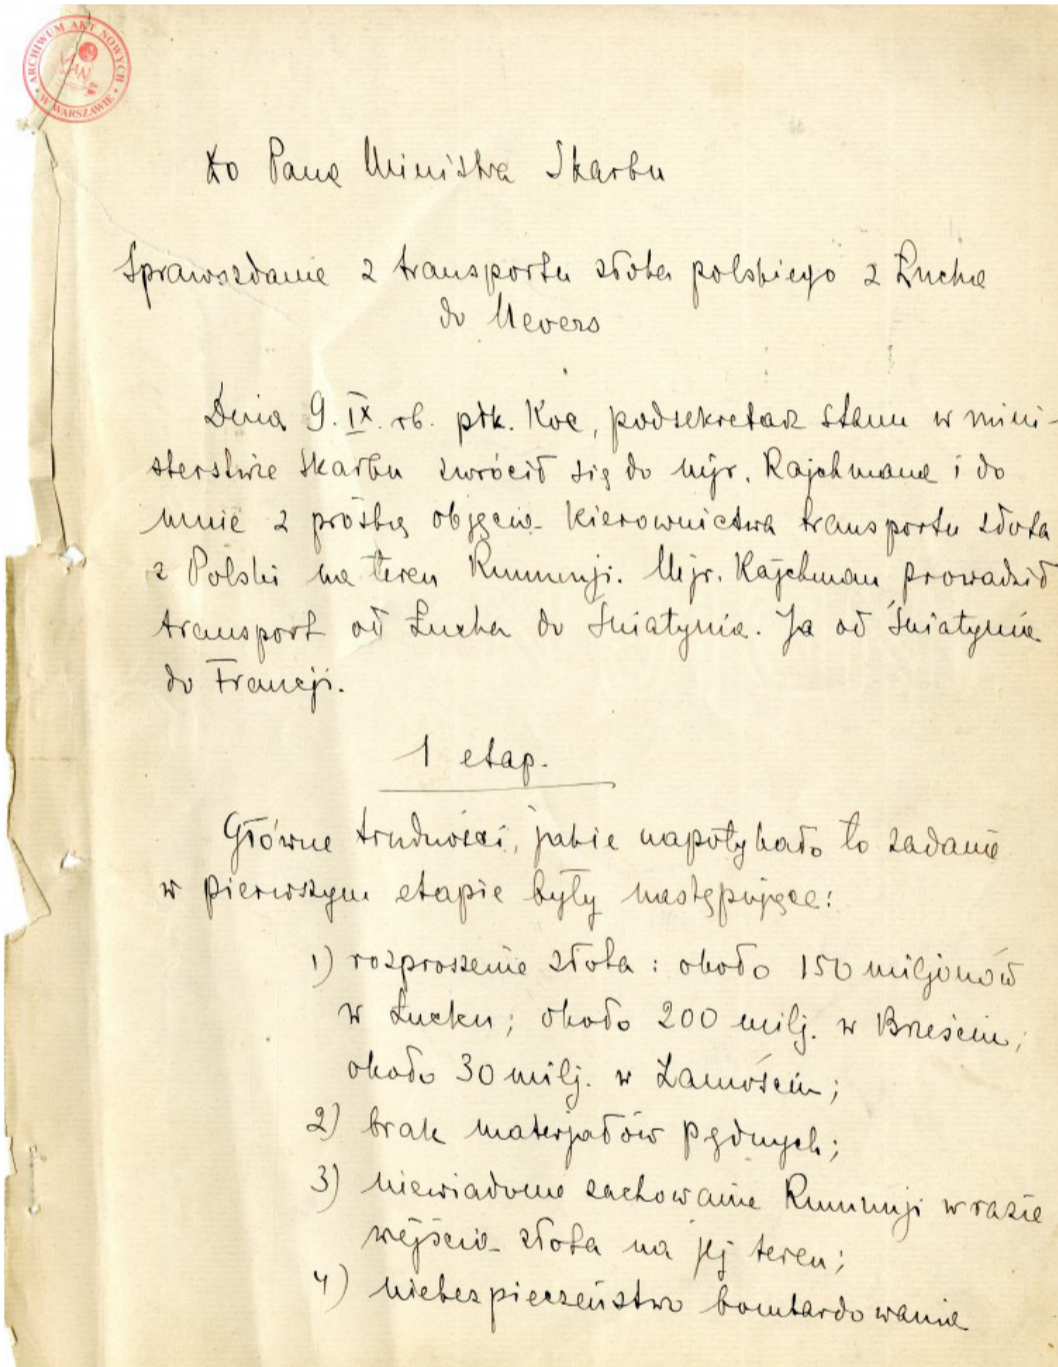 ARCHIWUM AKT NOWYCH
W WARSZAWIE
AAN
Do Pana Ministra Skarbu
Sprawozdanie z transportu złota polskiego z Łucka
do Nevers
Dnia 9.IX. rb. płk. Koc, podsekretarz stanu w mini-
sterstwie skarbu zwrócił się do mjr. Rajchmana i do
mnie z prośbą objęcia kierownictwa transportu złota
z Polski na teren Rumunji. Mjr. Rajchman prowadził
transport od Łucka do Śniatynia. Ja od Śniatynia
do Francji.
1 etap.
Główne trudności, jakie napotykało to zadanie
w pierwszym etapie były następujące:
1) rozproszenie złota: około 150 miljonów
w Łucku; około 200 milj. w Brześciu;
około 30 milj. w Zamościu;
2) brak materjałów pędnych;
3) niewiadome zachowanie Rumunji w razie
wejścia złota na jej teren;
4) niebezpieczeństwo bombardowania